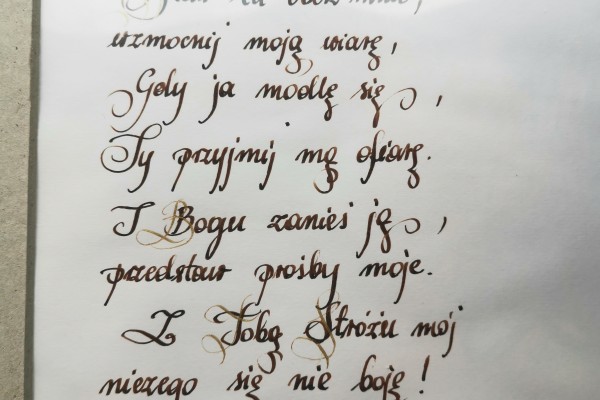 wzmocnij moją wiarę,
Gdy ja modlę się,
Ty przyjmij mą ofiarę.
I Bogu zanieś ją,
przedstaw prośby moje.
Z Tobą Stróżu mój
niczego się nie boję!